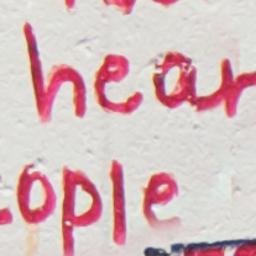 hear
ople